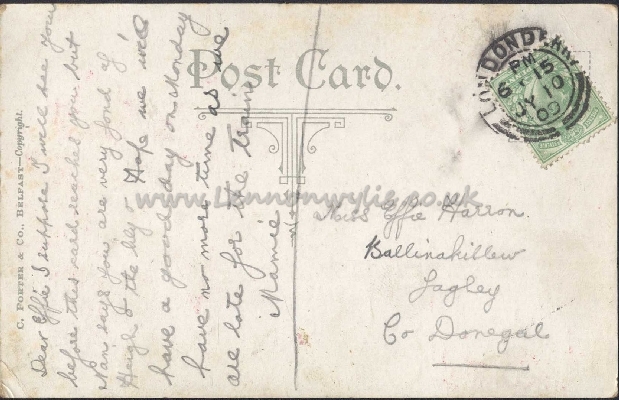 Post Card.
C. PORTER & CO., BELFAST—Copyright.
Dear Effie I suppose I will see you
before this card reaches you but
Nan says you are very fond of
Heigh I the Lily o Hope we will
have a good day on Monday
have no more time as we
are late for the train
Mamie
LONDONDERRY
6 15 PM
JY 10
09
Miss Effie Harron.
Ballinahillew
Lagley
Co Donegal
www.Lennonwylie.co.uk